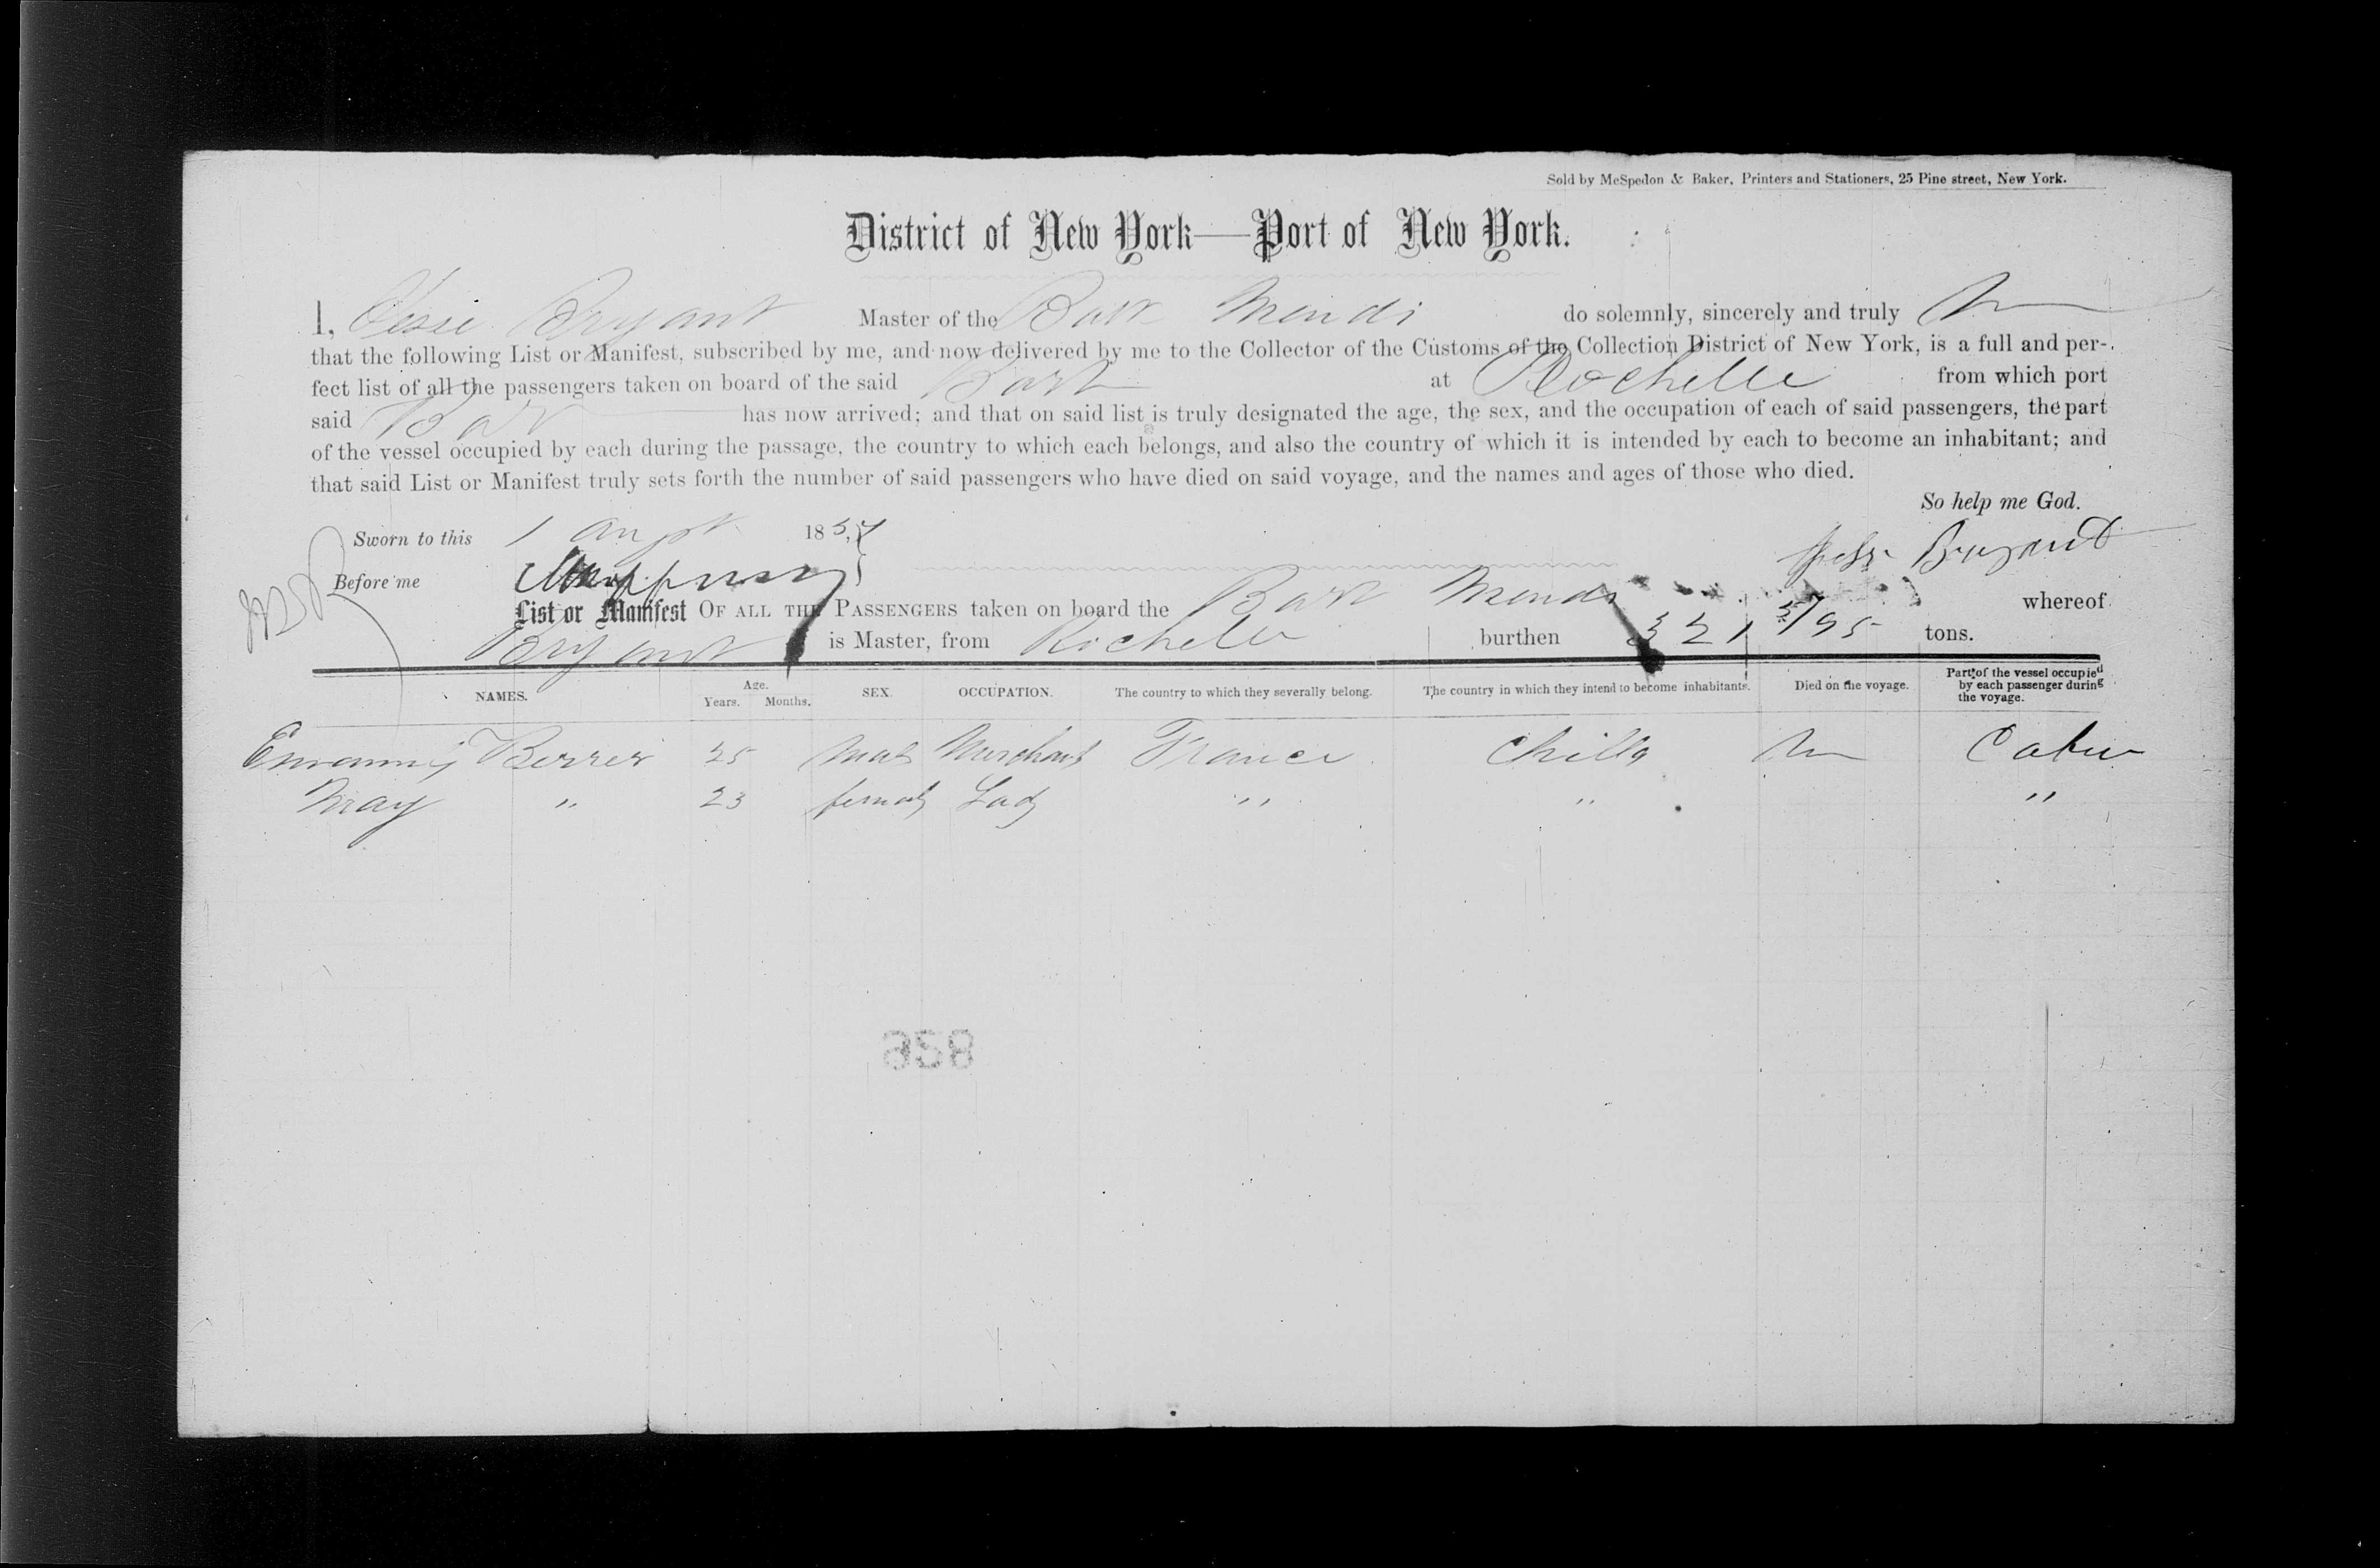 Sold by McSpedon & Baker, Printers and Stationers, 25 Pine street, New York.
District of New York—Port of New York.
I, Jesse Bryant Master of the Bark Mendi do solemnly, sincerely and truly
that the following List or Manifest, subscribed by me, and now delivered by me to the Collector of the Customs of the Collection District of New York, is a full and per-
fect list of all the passengers taken on board of the said Bark at Rochelle from which port
said Bark has now arrived; and that on said list is truly designated the age, the sex, and the occupation of each of said passengers, the part
of the vessel occupied by each during the passage, the country to which each belongs, and also the country of which it is intended by each to become an inhabitant; and
that said List or Manifest truly sets forth the number of said passengers who have died on said voyage, and the names and ages of those who died.
So help me God.
Sworn to this 1 185
Jesse Bryant
Before me
List or Manifest OF ALL THE PASSENGERS taken on board the Bark Mendi whereof
Bryant is Master, from Rochelle burthen 321 57/95 tons.
NAMES. Age. Years. Months. SEX. OCCUPATION. The country to which they severally belong. The country in which they intend to become inhabitants. Died on the voyage. Part of the vessel occupied by each passenger during the voyage.
Berrer 25 Male Merchant France Chilla Cabin
May " 23 female Lady " " "
858